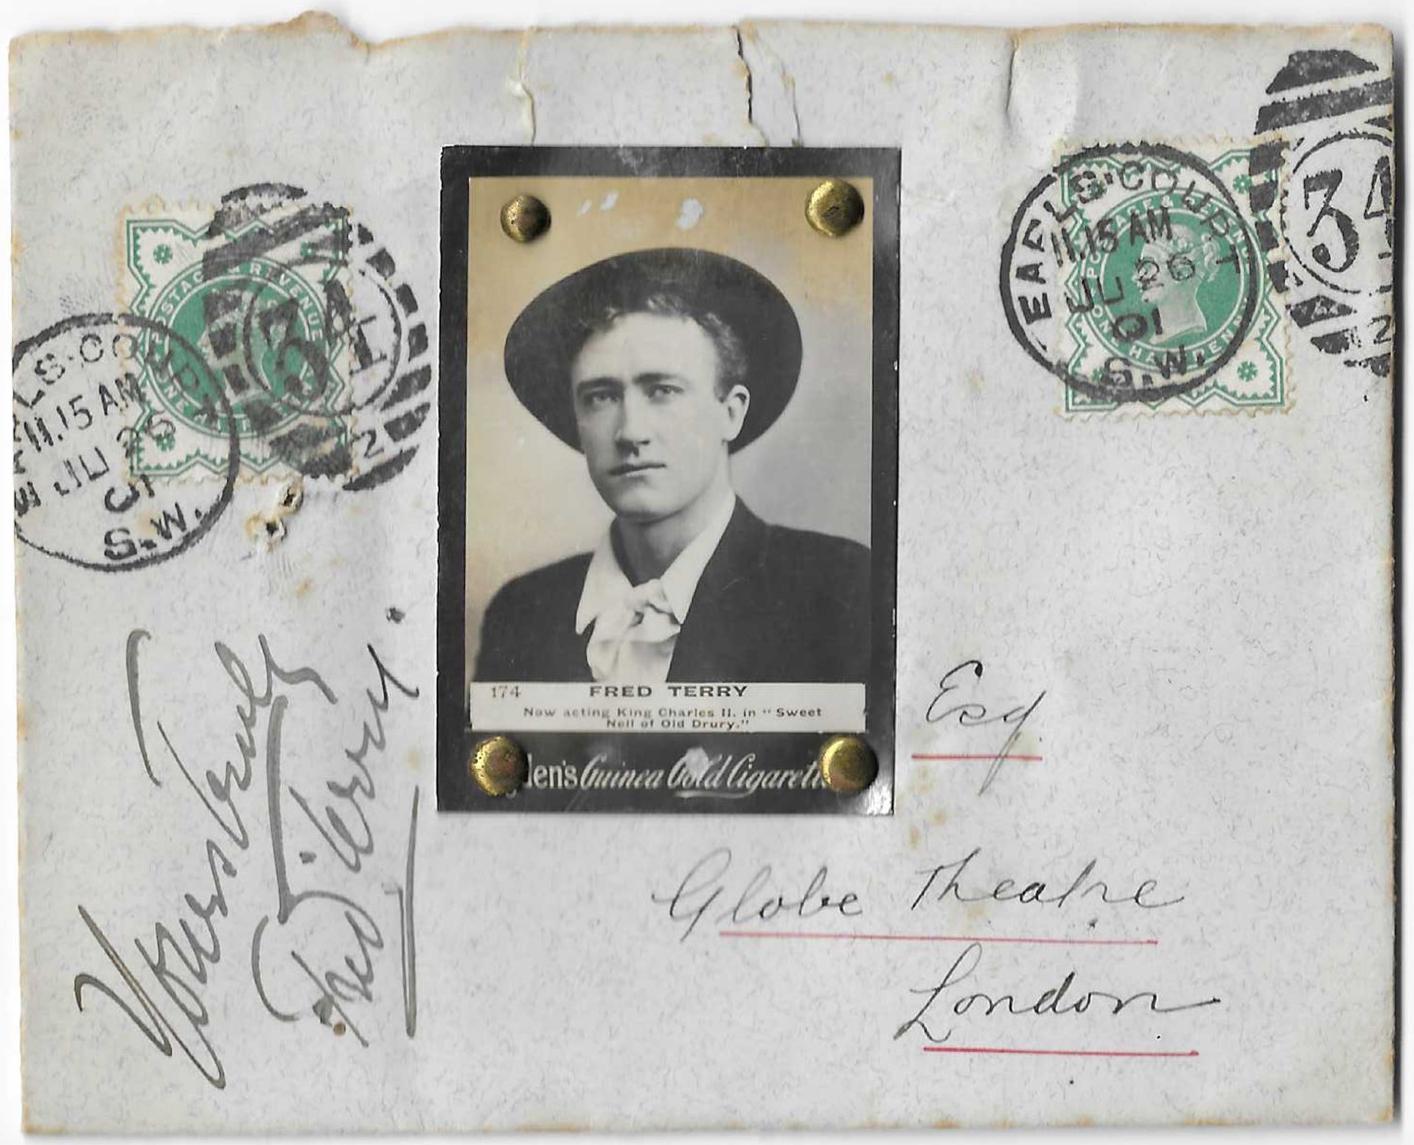 EARLS·COURT
11.15 AM
JU 26
01
S.W.
34
2
POSTAGE & REVENUE
ELS·COURT
11.15 AM
JU 26
01
S.W.
34
2
174 FRED TERRY
Now acting King Charles II. in "Sweet
Nell of Old Drury."
den's Guinea Gold Cigarett
Esq.
Globe Theatre
London
Yours truly
Fred Terry.